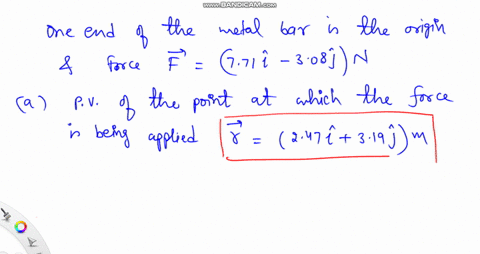 www.BANDICAM.com
One end of the metal bar is the origin
& force F⃗ = (7.71 î − 3.08 ĵ) N
(a) P.V. of the point at which the force
is being applied r⃗ = (2.47 î + 3.19 ĵ) m